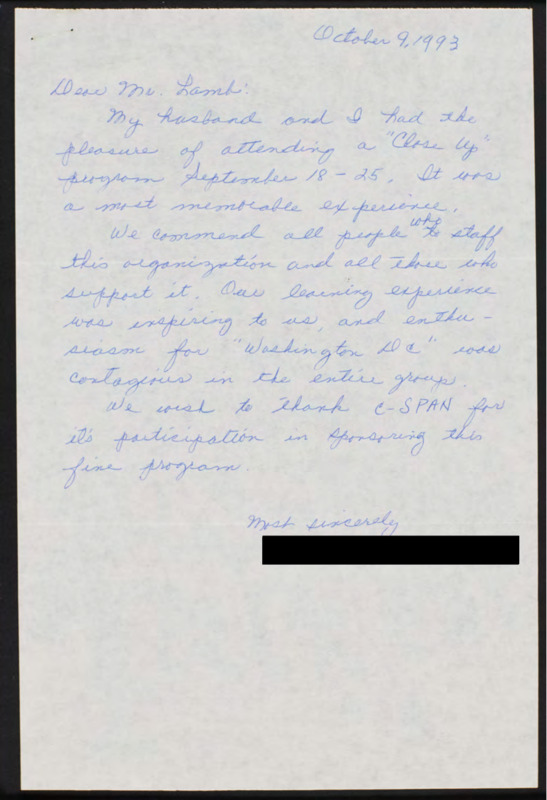 October 9, 1993
Dear Mr. Lamb:
My husband and I had the
pleasure of attending a "Close Up"
program September 18-25. It was
a most memorable experience.
We commend all people who staff
this organization and all those who
support it. Our learning experience
was inspiring to us, and enthu-
siasm for "Washington DC" was
contagious in the entire group.
We wish to thank C-SPAN for
it's participation in sponsoring this
fine program.
Most sincerely,